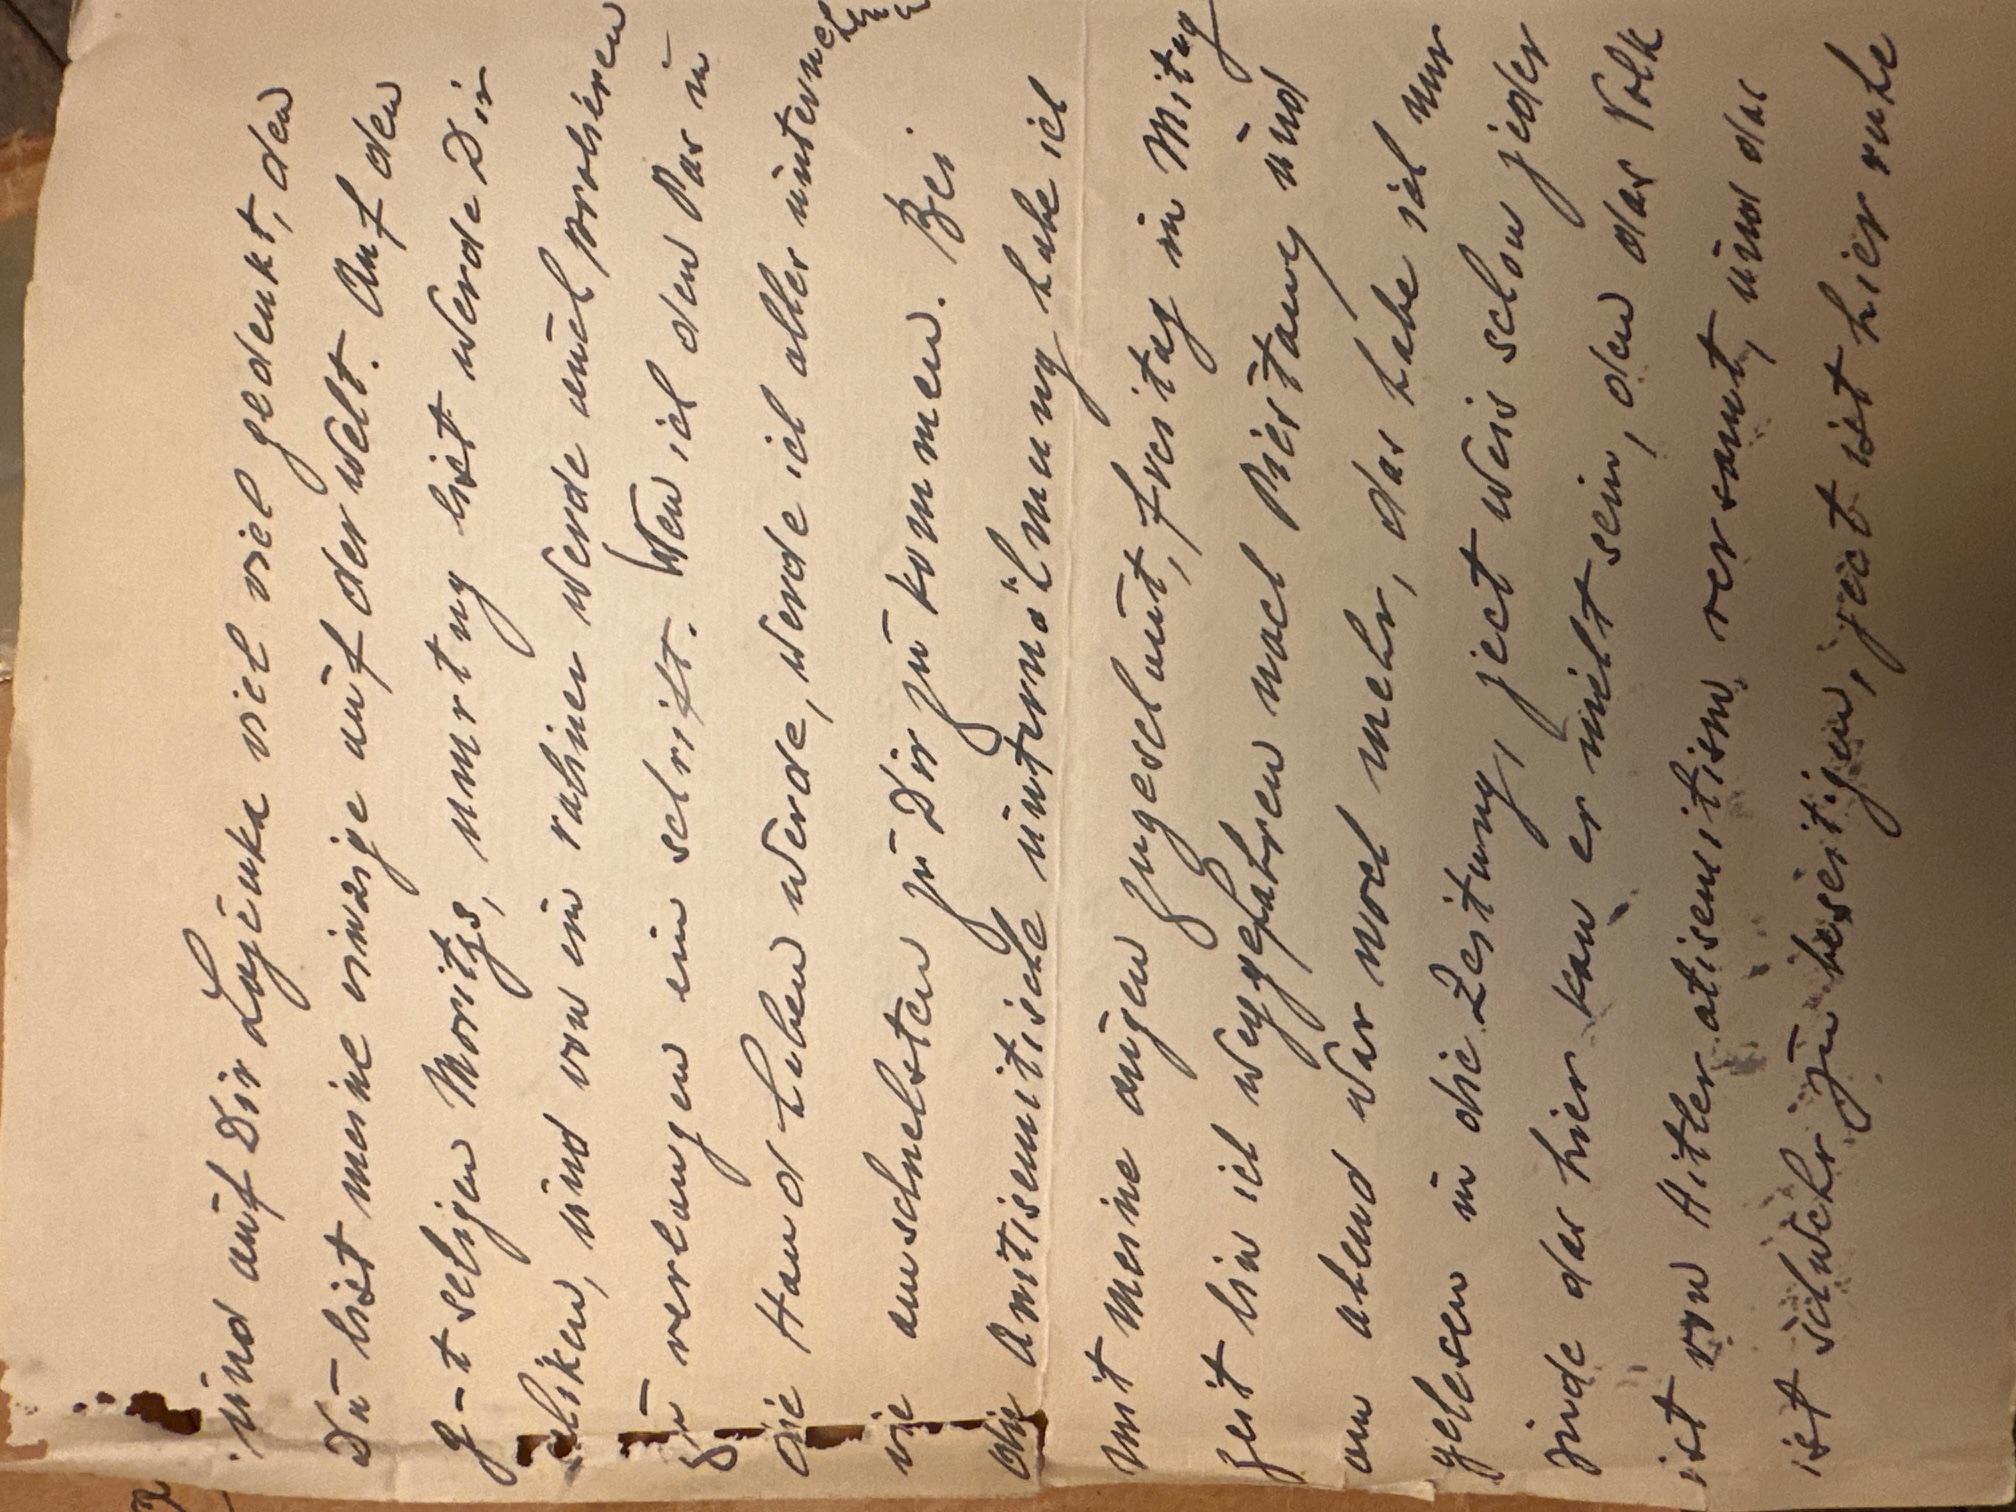 und auf Dir Lojenka viel viel gedenkt, den
Du bist meine einzige auf der Welt. Auf den
g-t seligen Moritzs, murtng bist werde Dir
schiken, und von ein rabiner werde auch probieren
zu verlangen ein schrift. Wen ich den Pas in
die Hand haben werde, werde ich alles unternemen
wie am schnelsten zu Dir zu kommen. Bei
die Antisemitische unternömung habe ich
mit meine augen zugeschaut, freitag in Mitag
zeit bin ich weggefahren nach Piestany und
am abend war noch mehr, das habe ich nur
gelesen in die Zeitung, ject weis schon jeder
jude das hier kan er nicht sein, den das Volk
ist von Hitler atisemitism versamt, und das
ist schwehr zu beseitigen, ject ist hier ruhe